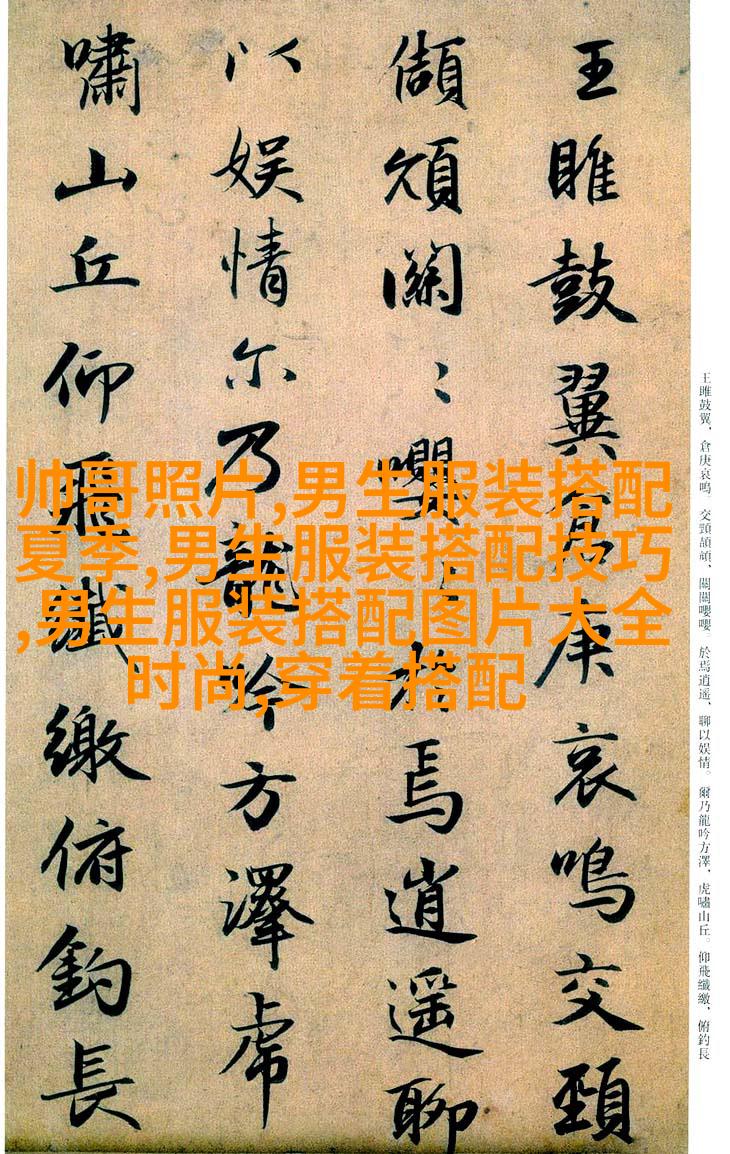 王雎鼓翼、倉庚哀鳴。交頸頡頏、關關嚶嚶。於焉逍遥、聊以娱情。爾乃龍吟方澤、虎嘯山丘。仰飛纖繳、俯釣長
王雎鼓翼倉庚哀鳴交頸
頡頏關〻嚶〻於焉逍遥聊
以娱情尔乃龍吟方澤虎
嘯山丘仰飛纖繳俯釣長
帅哥照片,男生服装搭配
夏季,男生服装搭配技巧
,男生服装搭配图片大全
时尚,穿着搭配